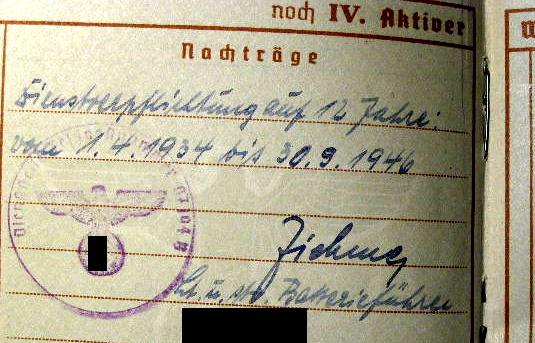 noch IV. Aktiver
Nachträge
Dienstverpflichtung auf 12 Jahre:
vom 1.4.1934 bis 30.9.1946
Lt. u. stv. Batterieführer